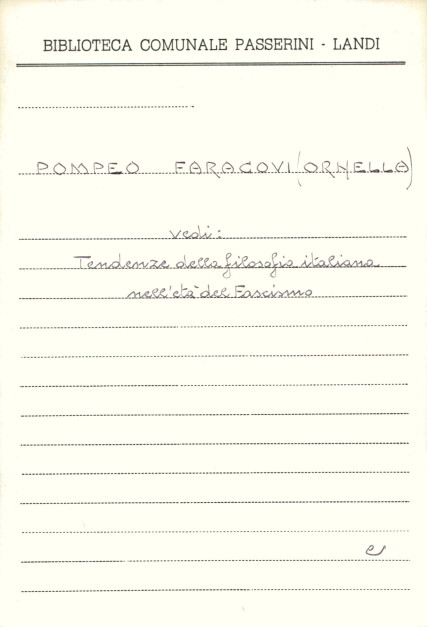 BIBLIOTECA COMUNALE PASSERINI - LANDI
POMPEO FARACOVI (ORNELLA)
vedi:
Tendenze della filosofia italiana
nell'età del Fascismo